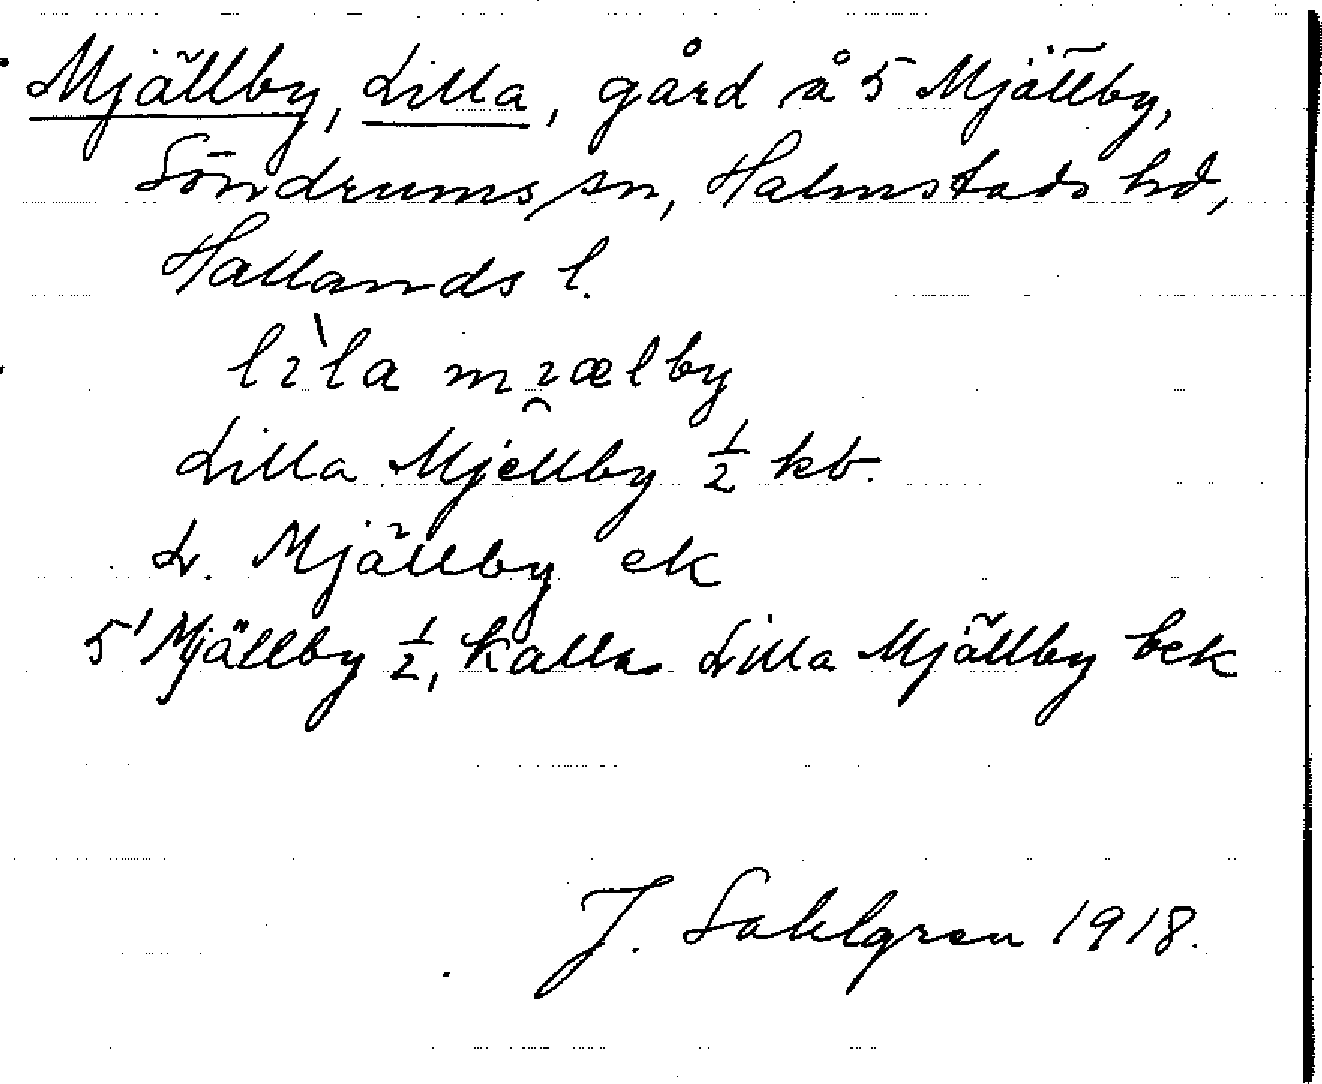 Mjällby, Lilla, gård å 5 Mjällby,
Söndrums sn, Halmstads hd,
Hallands l.
lı̀la mı̯ælby
Lilla Mjellby ½ kb.
L. Mjällby ek
5 Mjällby ½, kallas Lilla Mjällby bek
J. Sahlgren 1918.